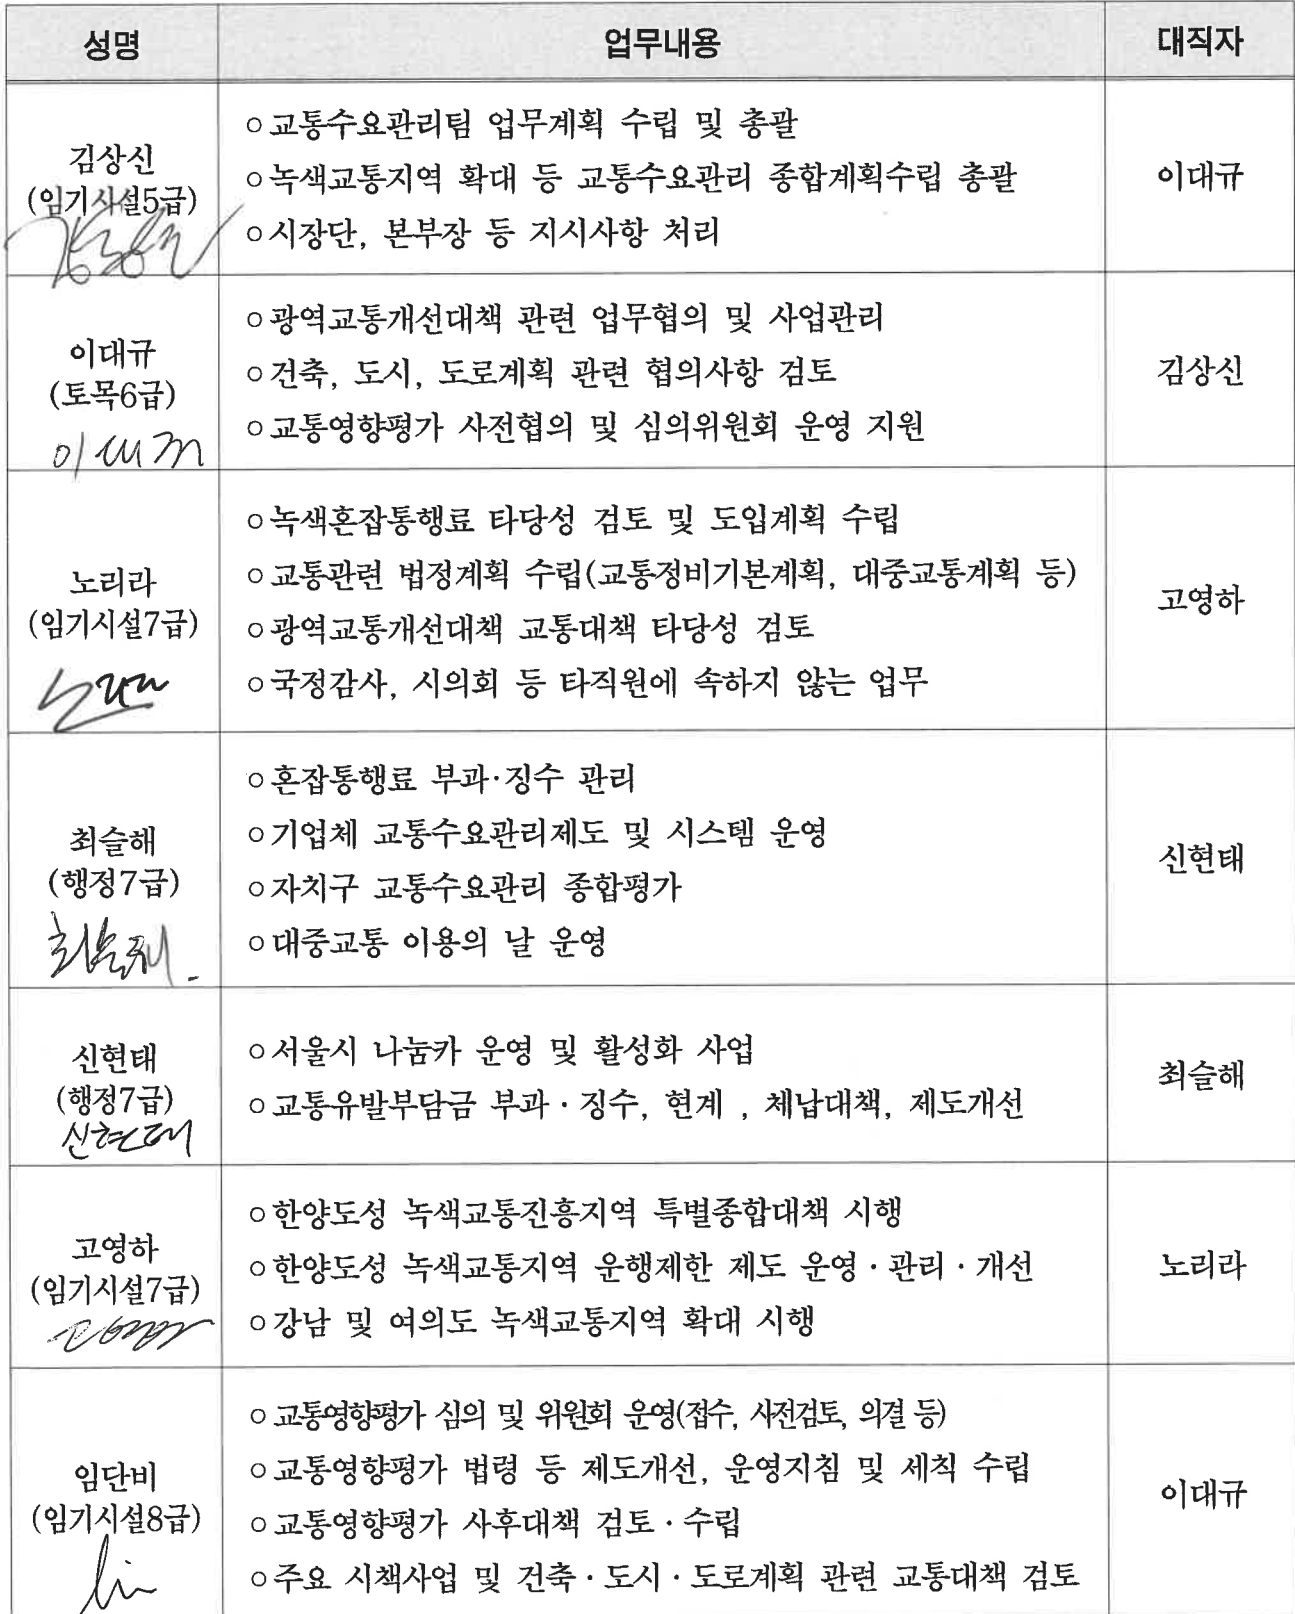 성명 업무내용 대직자
김상신
(임기시설5급)
김상신
○교통수요관리팀 업무계획 수립 및 총괄
○녹색교통지역 확대 등 교통수요관리 종합계획수립 총괄
○시장단, 본부장 등 지시사항 처리
이대규
이대규
(토목6급)
이대규
○광역교통개선대책 관련 업무협의 및 사업관리
○건축, 도시, 도로계획 관련 협의사항 검토
○교통영향평가 사전협의 및 심의위원회 운영 지원
김상신
노리라
(임기시설7급)
○녹색혼잡통행료 타당성 검토 및 도입계획 수립
○교통관련 법정계획 수립(교통정비기본계획, 대중교통계획 등)
○광역교통개선대책 교통대책 타당성 검토
○국정감사, 시의회 등 타직원에 속하지 않는 업무
고영하
최슬해
(행정7급)
최슬해
○혼잡통행료 부과·징수 관리
○기업체 교통수요관리제도 및 시스템 운영
○자치구 교통수요관리 종합평가
○대중교통 이용의 날 운영
신현태
신현태
(행정7급)
신현태
○서울시 나눔카 운영 및 활성화 사업
○교통유발부담금 부과·징수, 현계 , 체납대책, 제도개선
최슬해
고영하
(임기시설7급)
○한양도성 녹색교통진흥지역 특별종합대책 시행
○한양도성 녹색교통지역 운행제한 제도 운영·관리·개선
○강남 및 여의도 녹색교통지역 확대 시행
노리라
임단비
(임기시설8급)
lim
○교통영향평가 심의 및 위원회 운영(접수, 사전검토, 의결 등)
○교통영향평가 법령 등 제도개선, 운영지침 및 세칙 수립
○교통영향평가 사후대책 검토·수립
○주요 시책사업 및 건축·도시·도로계획 관련 교통대책 검토
이대규